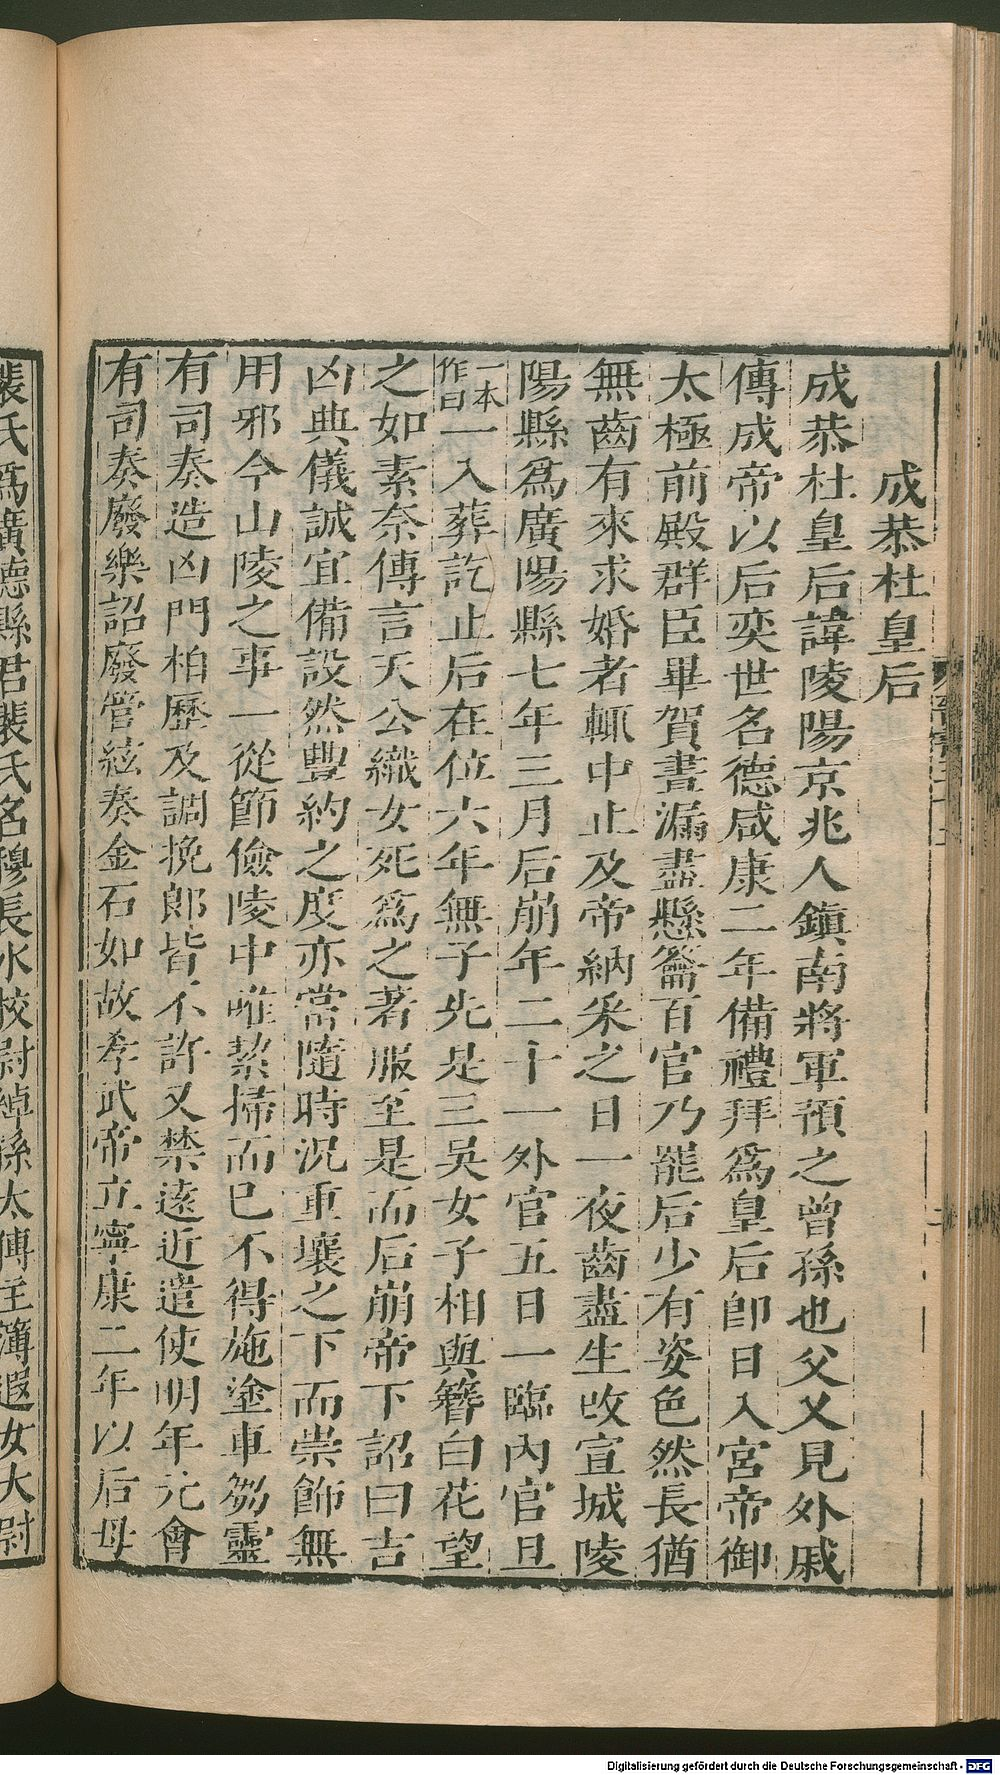 成恭杜皇后
成恭杜皇后諱陵陽京兆人鎮南將軍預之曾孫也父乂見外戚
傳成帝以后奕世名德咸康二年備禮拜爲皇后卽日入宮帝御
太極前殿群臣畢賀晝漏盡懸籥百官乃罷后少有姿色然長猶
無齒有來求婚者輒中止及帝納采之日一夜齒盡生改宣城陵
陽縣爲廣陽縣七年三月后崩年二十一外官五日一臨內官旦
一本作曰一入葬訖止后在位六年無子先是三吳女子相與簪白花望
之如素奈傳言天公織女死爲之著服至是而后崩帝下詔曰吉
凶典儀誠宜備設然豐約之度亦當隨時況重壤之下而崇飾無
用邪今山陵之事一從節儉陵中唯絜掃而已不得施塗車芻靈
有司奏造凶門柏歷及調挽郎皆不許又禁遠近遣使明年元會
有司奏廢樂詔廢管絃奏金石如故孝武帝立寧康二年以后母
裴氏爲廣德縣君裴氏名穆長水校尉綽孫太傅主簿遐女太尉
Digitalisierung gefördert durch die Deutsche Forschungsgemeinschaft - DFG